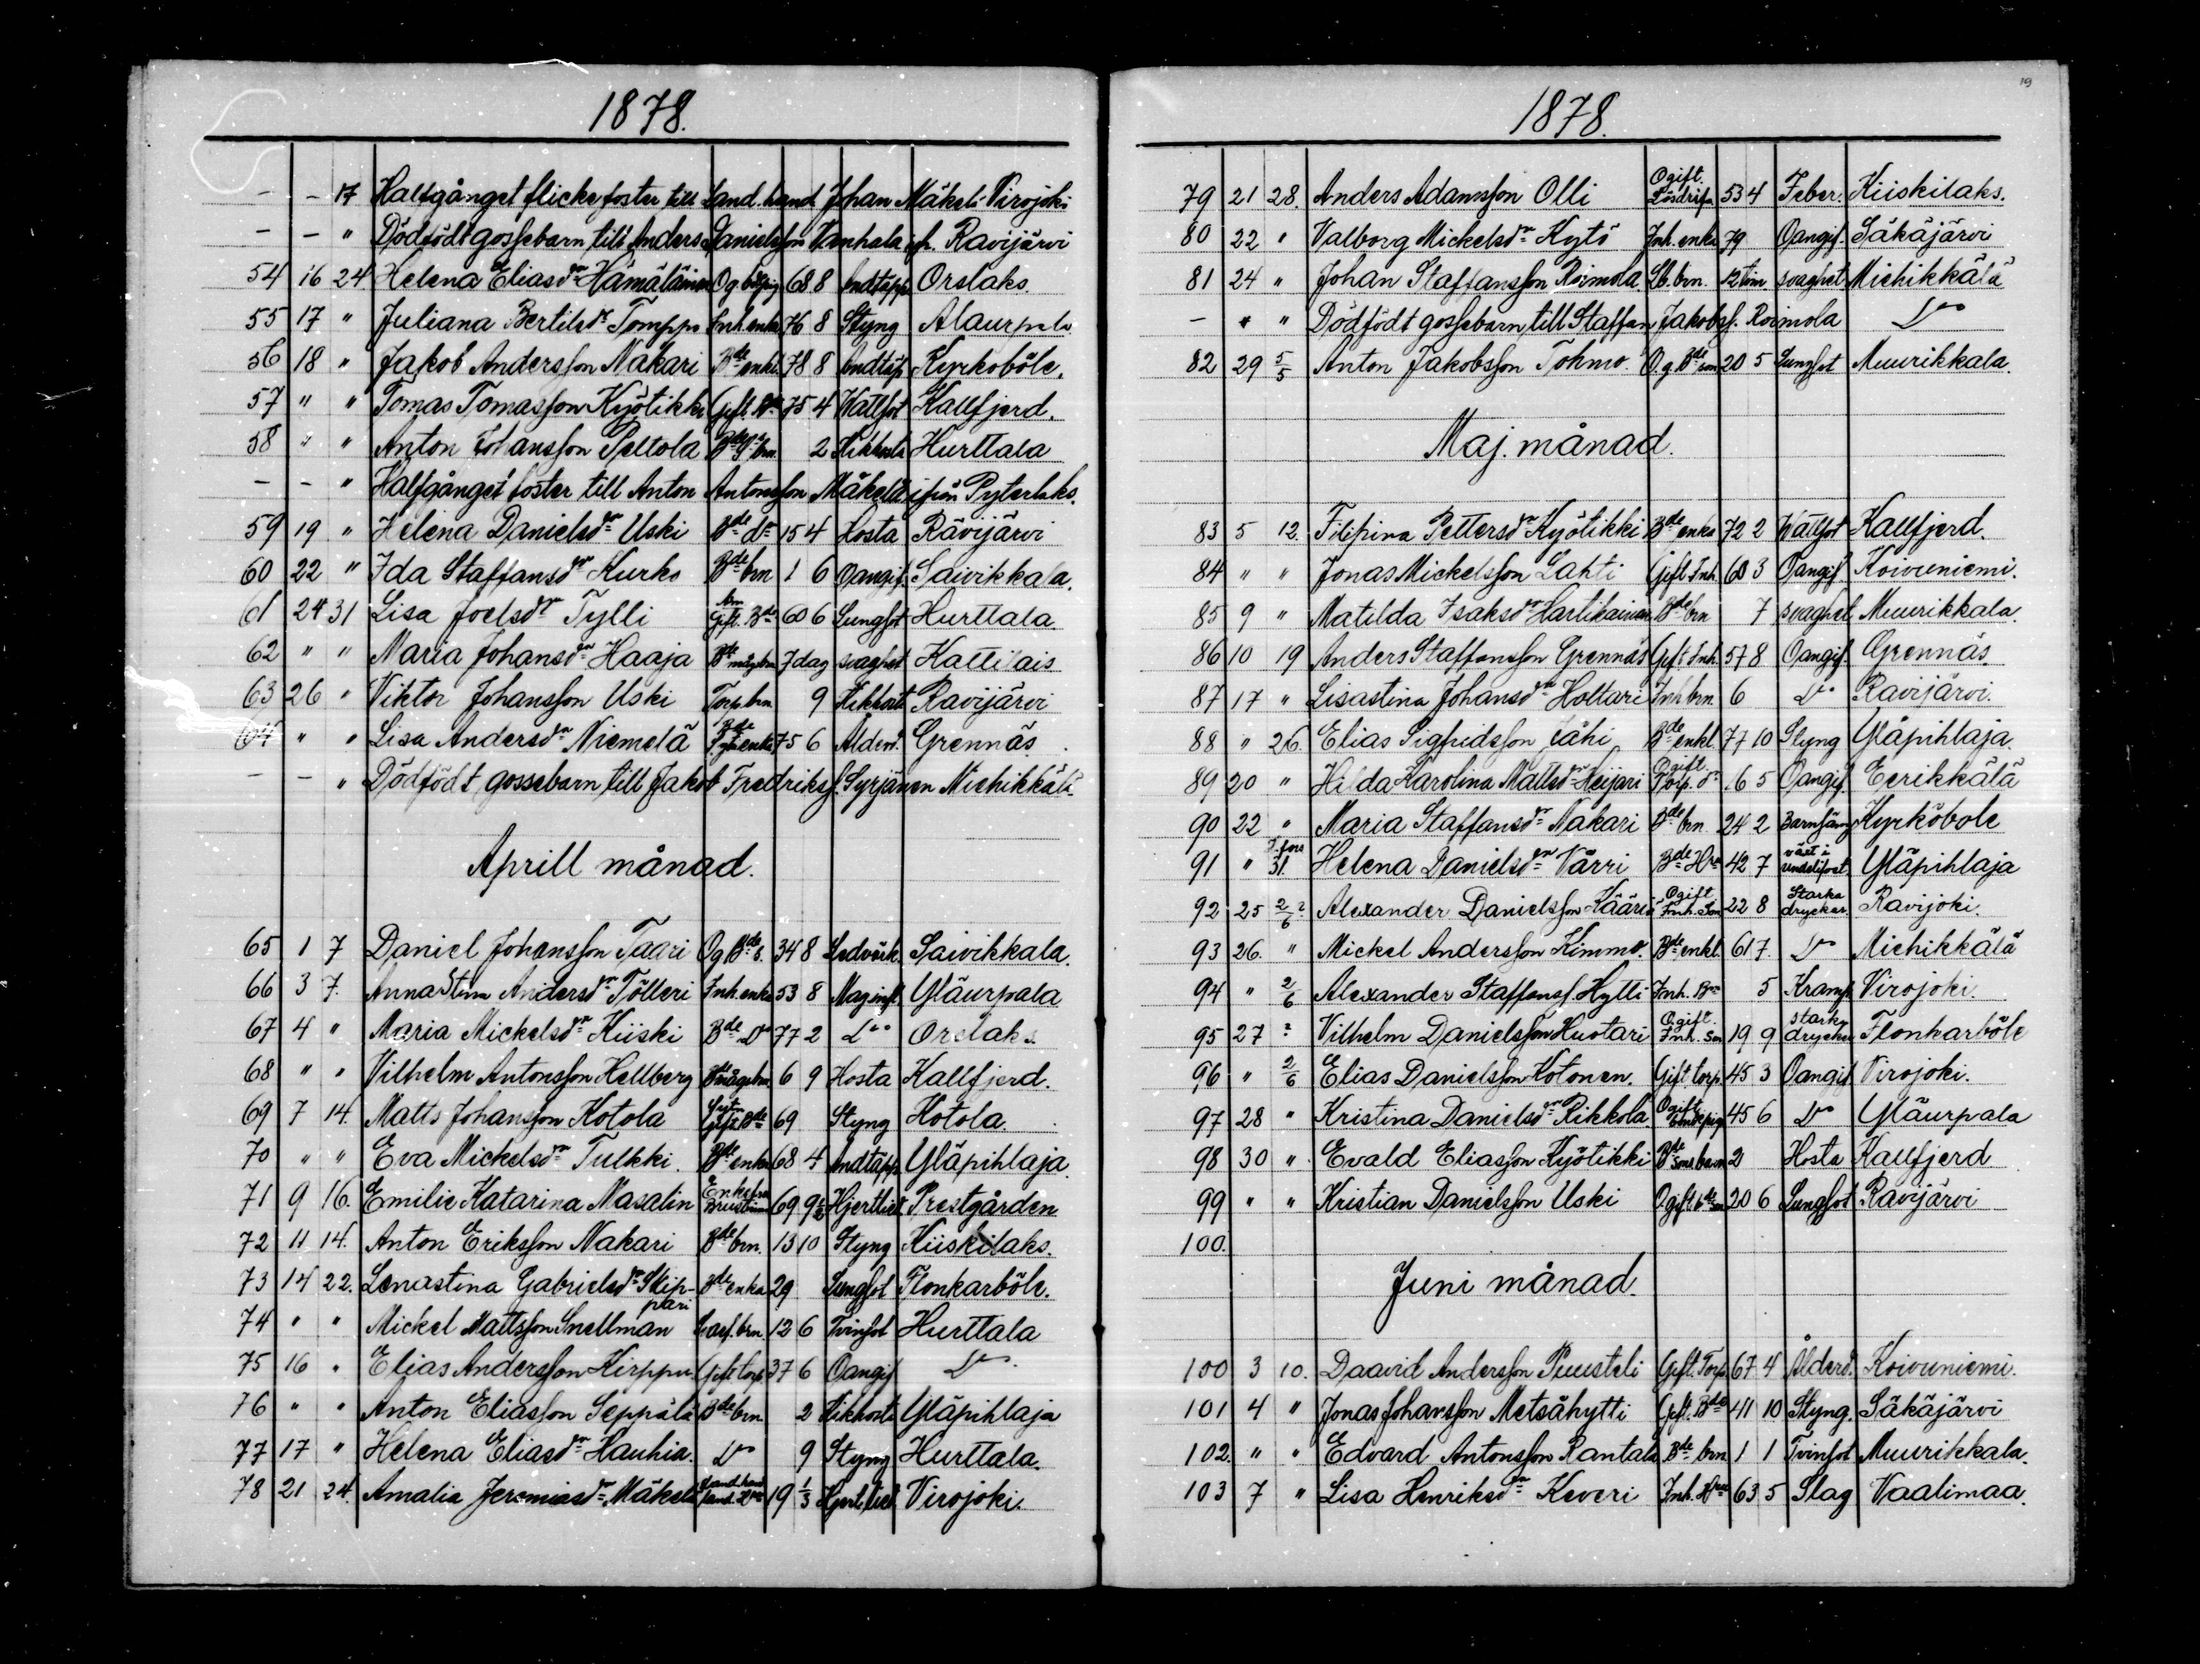 1878.
— — 17 Halfgånget flickefoster till Land.hand. Johan Mäkelä Virojoki
— — " Dödfödt gossebarn till Anders Danielsson fr. Ravijärvi
54 16 24 Helena Eliasdr Hämäläinen Og. 68 8 Andtäpp Orslaks.
55 17 " Juliana Bertilsdr Tomppo Inh. enka 76 8 Styng Alaurpala
56 18 " Jakob Andersson Nakari Bde enkl. 78 8 Andtäp. Kyrkoböle.
57 " " Tomas Tomasson Kyötikki Gift. Bde 75 4 Vattsot Kallfjerd.
58 " " Anton Johansson Peltola Bde brn 2 Kikhosta Hurttala
— — " Halfgånget foster till Anton Antonsson Mäkelä ifrån Pyterlaks.
59 19 " Helena Danielsdr Uski Bde dr 15 4 Hosta Ravijärvi
60 22 " Ida Staffansdr Kurko Bde brn 1 6 Oangif. Saivikkala.
61 24 31 Lisa Joelsdr Tylli Gift. Bde 60 6 Lungsot Hurttala
62 " " Maria Johansdr Haaja Bde mågbrn 7 dag svaghet Kattilais
63 26 " Viktor Johansson Uski Torp brn 9 Kikhost Ravijärvi
64 " " Lisa Andersdr Niemelä Bde enka 75 6 Ålderd. Grennäs.
— — " Dödfödt gossebarn till Jakob Fredriksf. Syrjänen Miehikkälä
Aprill månad.
65 1 7 Daniel Johansson Taari Og Bde s. 34 8 Ledvärk. Saivikkala.
66 3 7. Annastina Andersdr Tölleri Inh. enka 53 8 Mag infl. Yläurpala
67 4 " Maria Mickelsdr Kiiski Bde Dr 77 2 Do Orslaks
68 " " Vilhelm Antonsson Hellberg Bde mågebrn 6 9 Hosta Kallfjerd.
69 7 14. Matts Johansson Kotola Gift Bde 69 Styng Kotola.
70 " " Eva Mickelsdr Tulkki. Bde enka 68 4 Andtäpp Yläpihlaja
71 9 16. Emilie Katarina Nasalin Enkefru 69 9½ Hjertlid Prestgården
72 11 14. Anton Eriksson Nakari Bde brn. 13 10 Styng Kiiskilaks.
73 14 22. Lenastina Gabrielsdr Skip-
pari Bde enka 29 Lungsot Flonkarböle.
74 " " Mickel Mattsson Snellman brn. 12 6 Tvinsot Hurttala
75 16 " Elias Andersson Kirppu Gift torp 37 6 Oangif Do
76 " " Anton Eliasson Seppälä Bde brn. 2 Kikhosta Yläpihlaja
77 17 " Helena Eliasdr Hauhia. Do 9 Styng Hurttala.
78 21 24. Amalia Jeremiasdr Mäkelä Land.hand 19 ⅓ Hjert lid Virojoki.
19
1878.
79 21 28. Anders Adamsson Olli Ogift. Lösdrif. 53 4 Feber. Kiiskilaks.
80 22 " Valborg Mickelsdr Kytö Inh. enka 79 Oangif. Säkäjärvi
81 24 " Johan Staffansson Roimola brn. 12 tim svaghet Miehikkälä
— " " Dödfödt gossebarn till Staffan Jakobsf. Roimola Do
82 29 5/5 Anton Jakobsson Tohmo. Og. Bde son 20 5 Lungsot Muurikkala.
Maj. månad.
83 5 12. Filipina Pettersdr Kyötikki Bde enka 72 2 Vattsot Kallfjerd.
84 " " Jonas Mickelsson Lahti Gift Inh. 60 3 Oangif Koivuniemi.
85 9 " Matilda Isaksdr Hartikainen Bde brn 7 svaghet Muurikkala.
86 10 19 Anders Staffansson Grennäs Gift Inh. 57 8 Oangif. Grennäs.
87 17 " Lisastina Johansdr Holtari Inh brn. 6 Do Ravijärvi.
88 " 26. Elias Sigfridsson Lähi Bde enkl. 77 10 Styng Yläpihlaja.
89 20 " Hilda Karolina Mattsdr Heijari Ogift. Torp. dr 16 5 Oangif. Eerikkälä
90 22 " Maria Staffansdr Nakari Bde brn. 24 2 Barnsäng Kyrköbole
91 " 31. Helena Danielsdr Värri Bde Hru 42 7 Yläpihlaja
92 25 2/6 ? Alexander Danielsson Kääriä Ogift Inh. Son 22 8 Starka drycker. Ravijoki.
93 26. " Mickel Andersson Kimmo. Bde enkl. 61 7. Do Miehikkälä
94 " 2/6 Alexander Staffansf. Hytti Inh. Brn 5 Kramp Virojoki.
95 27 ? Vilhelm Danielsson Huotari Ogift. Inh. Son 19 9 Stark drycker Flonkarböle
96 " 2/6 Elias Danielsson Kotonen. Gift torp. 45 3 Oangif Virojoki.
97 28 " Kristina Danielsdr Pikkola Ogift 45 6 Do Yläurpala
98 30 " Evald Eliasson Kyötikki Bde sons barn 2 Hosta Kallfjerd
99 " " Kristian Danielsson Uski Ogift bde son 20 6 Lungsot Ravijärvi
100.
Juni månad.
100 3 10. Daavid Andersson Puusteli Gift. Torp. 67 4 Ålderd. Koivuniemi.
101 4 " Jonas Johansson Metsähytti Gift. Bde 41 10 Styng. Säkäjärvi
102. " " Edvard Antonsson Rantala Bde brn 1 1 Tvinsot Muurikkala.
103 7 " Lisa Henriksdr Keveri Inh. Hru 63 5 Slag Vaalimaa.